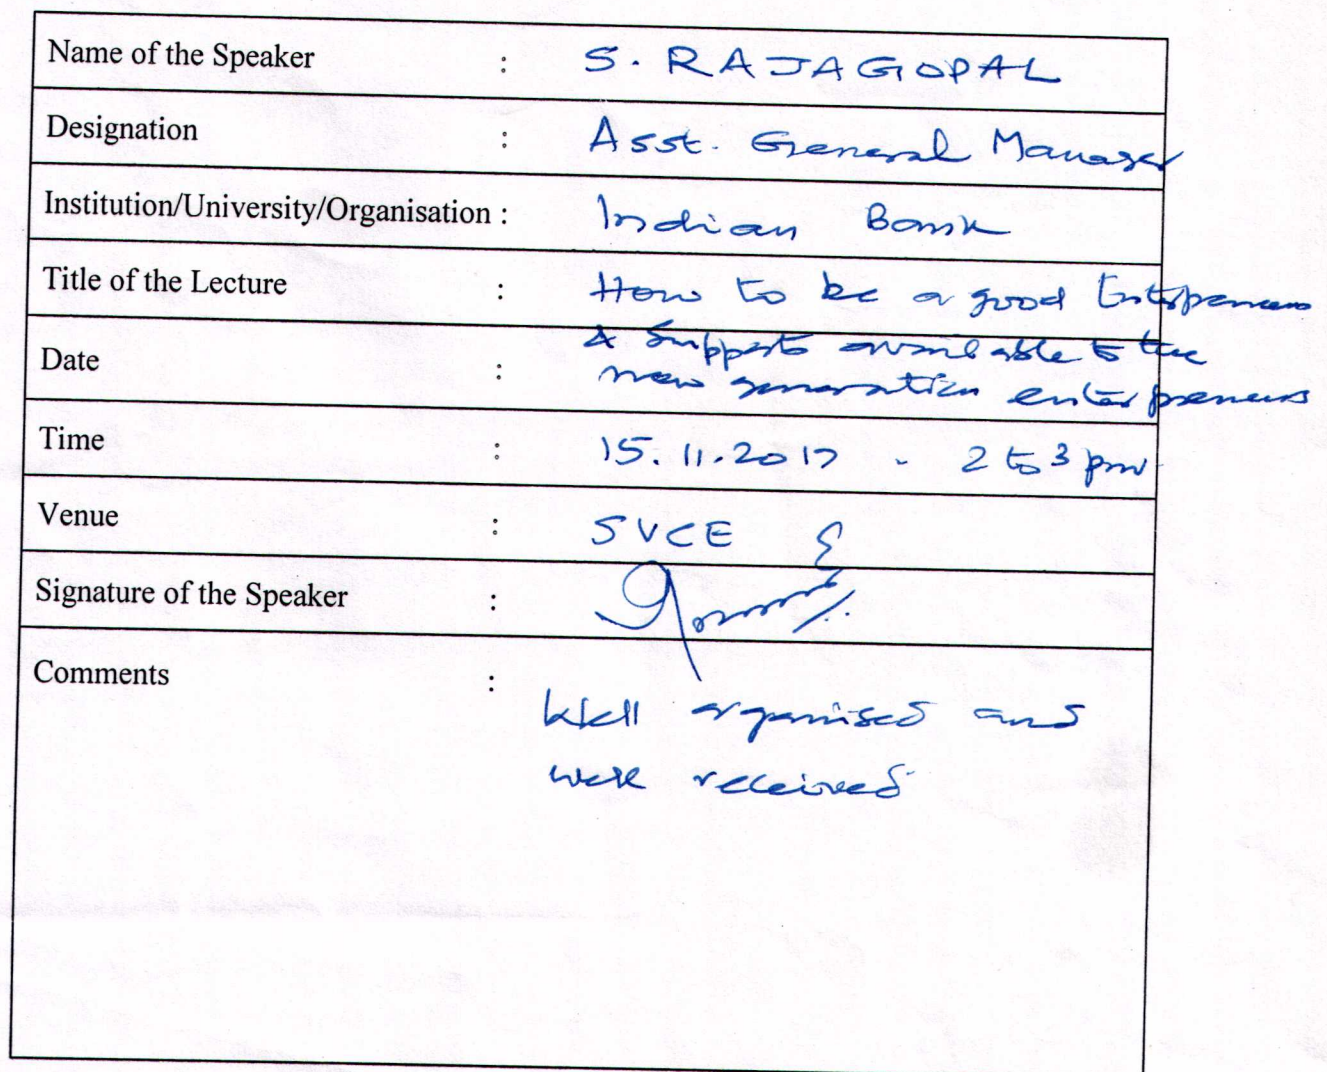 Name of the Speaker : S. RAJAGOPAL
Designation : Asst. General Manager
Institution/University/Organisation : Indian Bank
Title of the Lecture : How to be a good
& Supports available to the
Date : new generation enterpreneurs
Time : 15.11.2017 - 2 to 3 pm
Venue : SVCE
Signature of the Speaker :
Comments :
Well organised and
well received